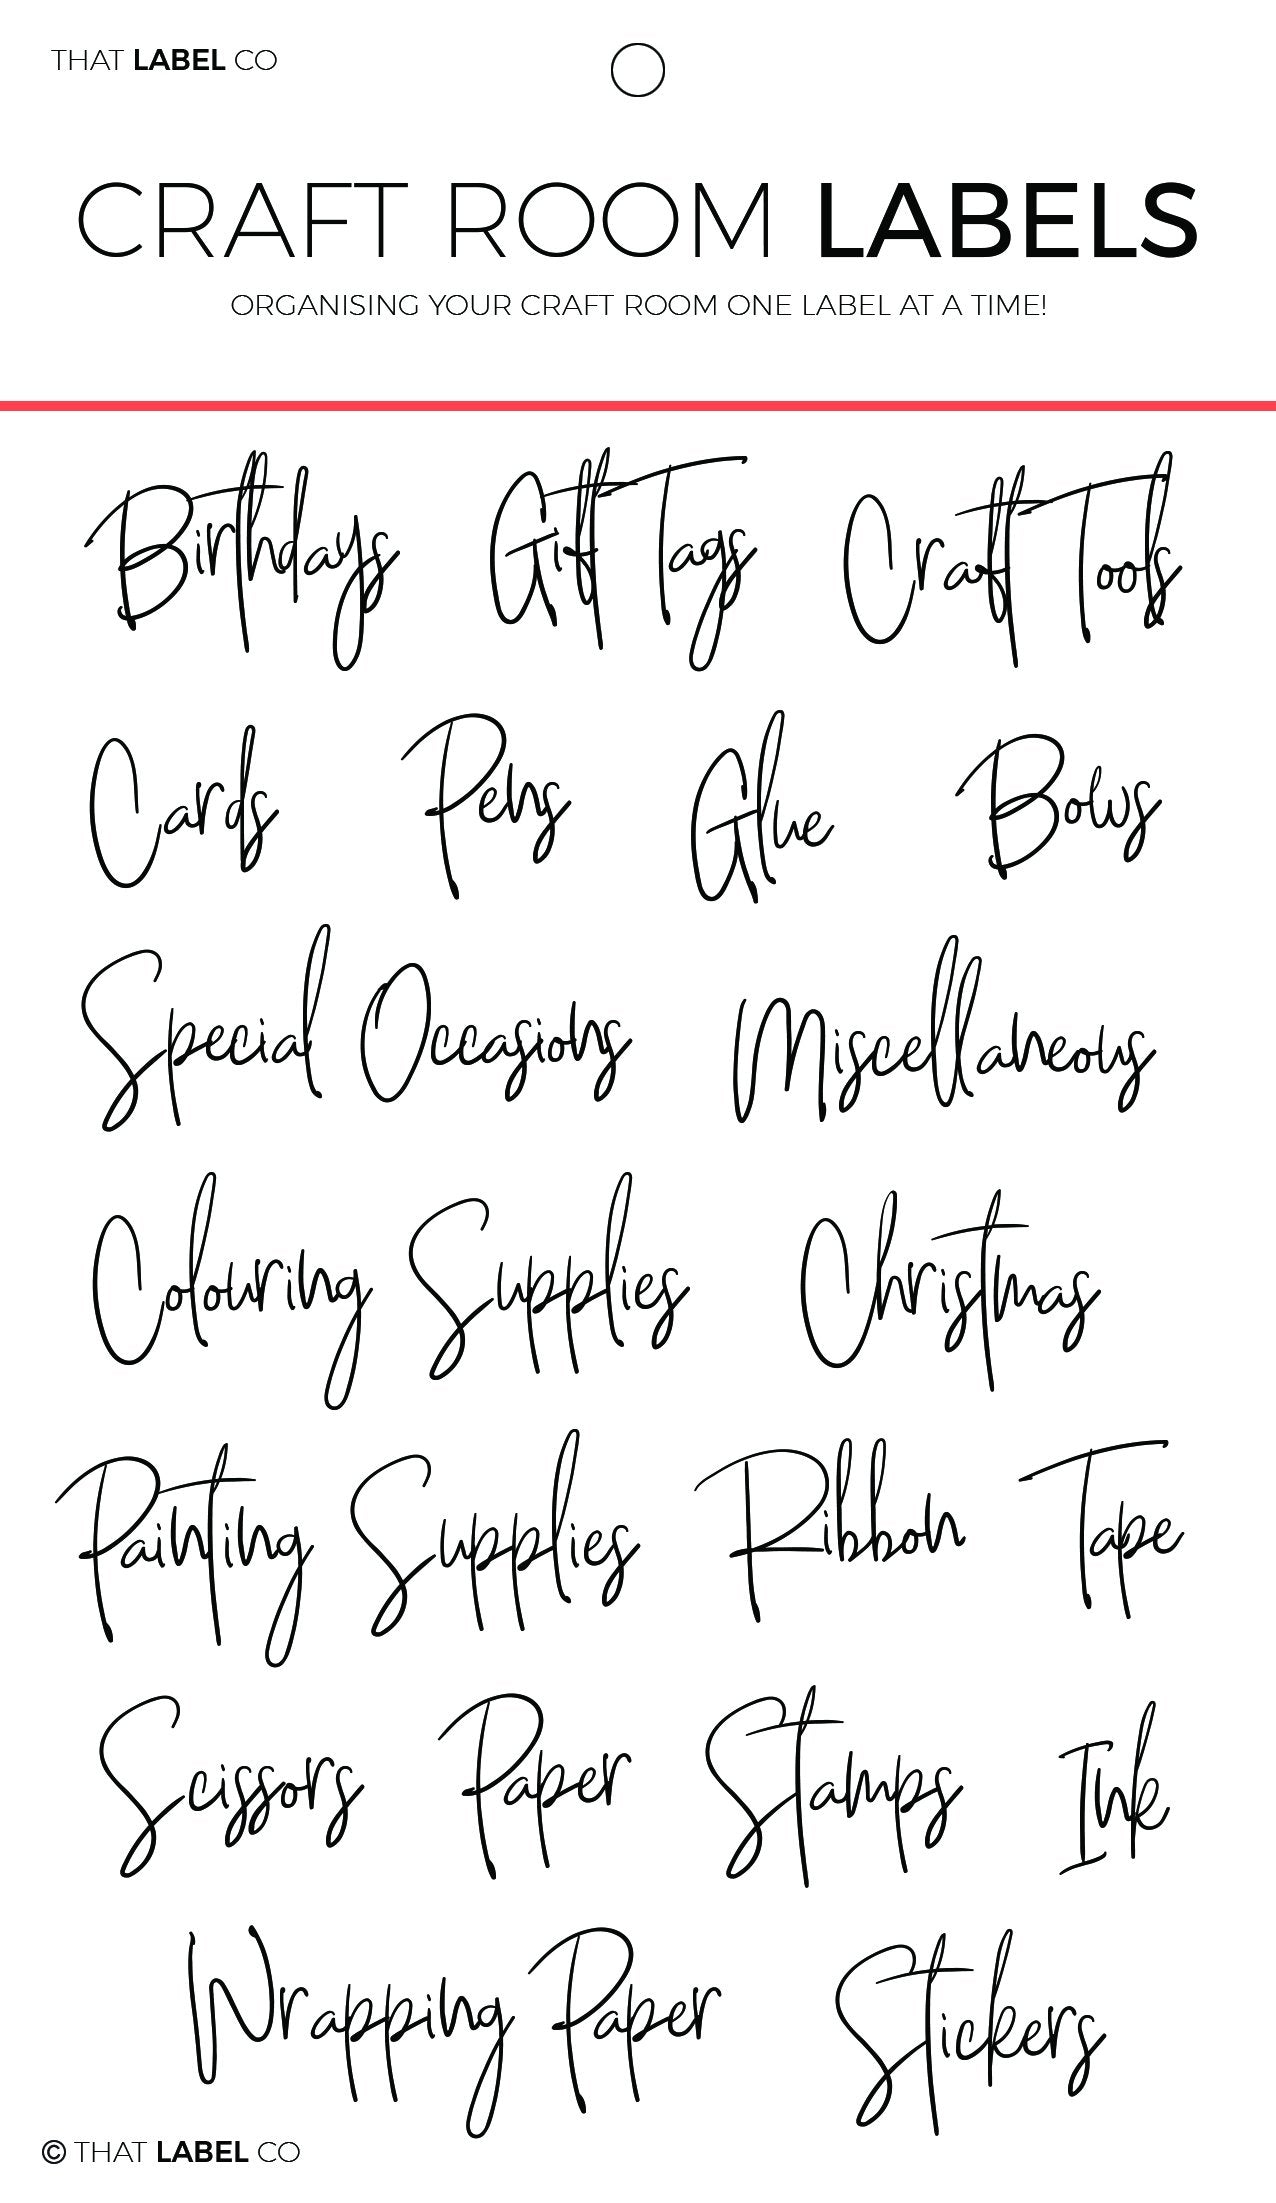 THAT LABEL CO
CRAFT ROOM LABELS
ORGANISING YOUR CRAFT ROOM ONE LABEL AT A TIME!
Birthdays Gift Tags Craft Tools
Cards Pens Glue Bows
Special Occasions Miscellaneous
Colouring Supplies Christmas
Painting Supplies Ribbon Tape
Scissors Paper Stamps Ink
Wrapping Paper Stickers
© THAT LABEL CO